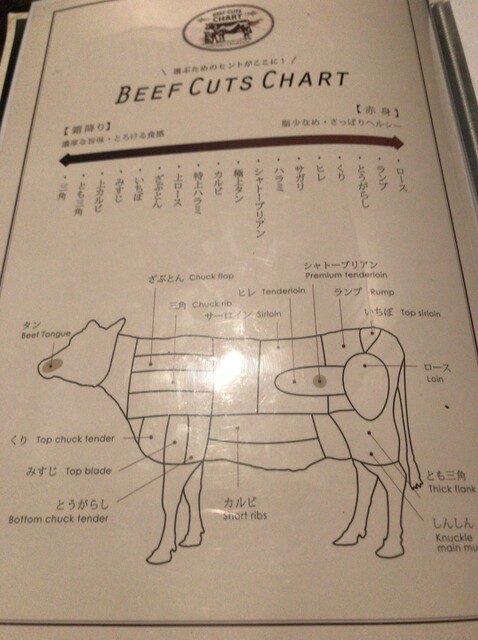 BEEF CUTS
CHART
\ 選ぶためのヒントがここに！ /
BEEF CUTS CHART
【霜降り】
濃厚な旨味・とろける食感
【赤身】
脂少なめ・さっぱりヘルシー
・三角
・とも三角
・上カルビ
・みすじ
・いちぼ
・ざぶとん
・上ロース
・特上ハラミ
・カルビ
・極上タン
・シャトーブリアン
・ハラミ
・サガリ
・ヒレ
・くり
・とうがらし
・ランプ
・ロース
シャトーブリアン
Premium tenderloin
ざぶとん Chuck flap
ヒレ Tenderloin
ランプ Rump
三角 Chuck rib
サーロイン Sirloin
いちぼ Top sirloin
タン
Beef Tongue
ロース
Loin
くり Top chuck tender
みすじ Top blade
とうがらし
Bottom chuck tender
カルビ
Short ribs
とも三角
Thick flank
しんしん
Knuckle
main mu